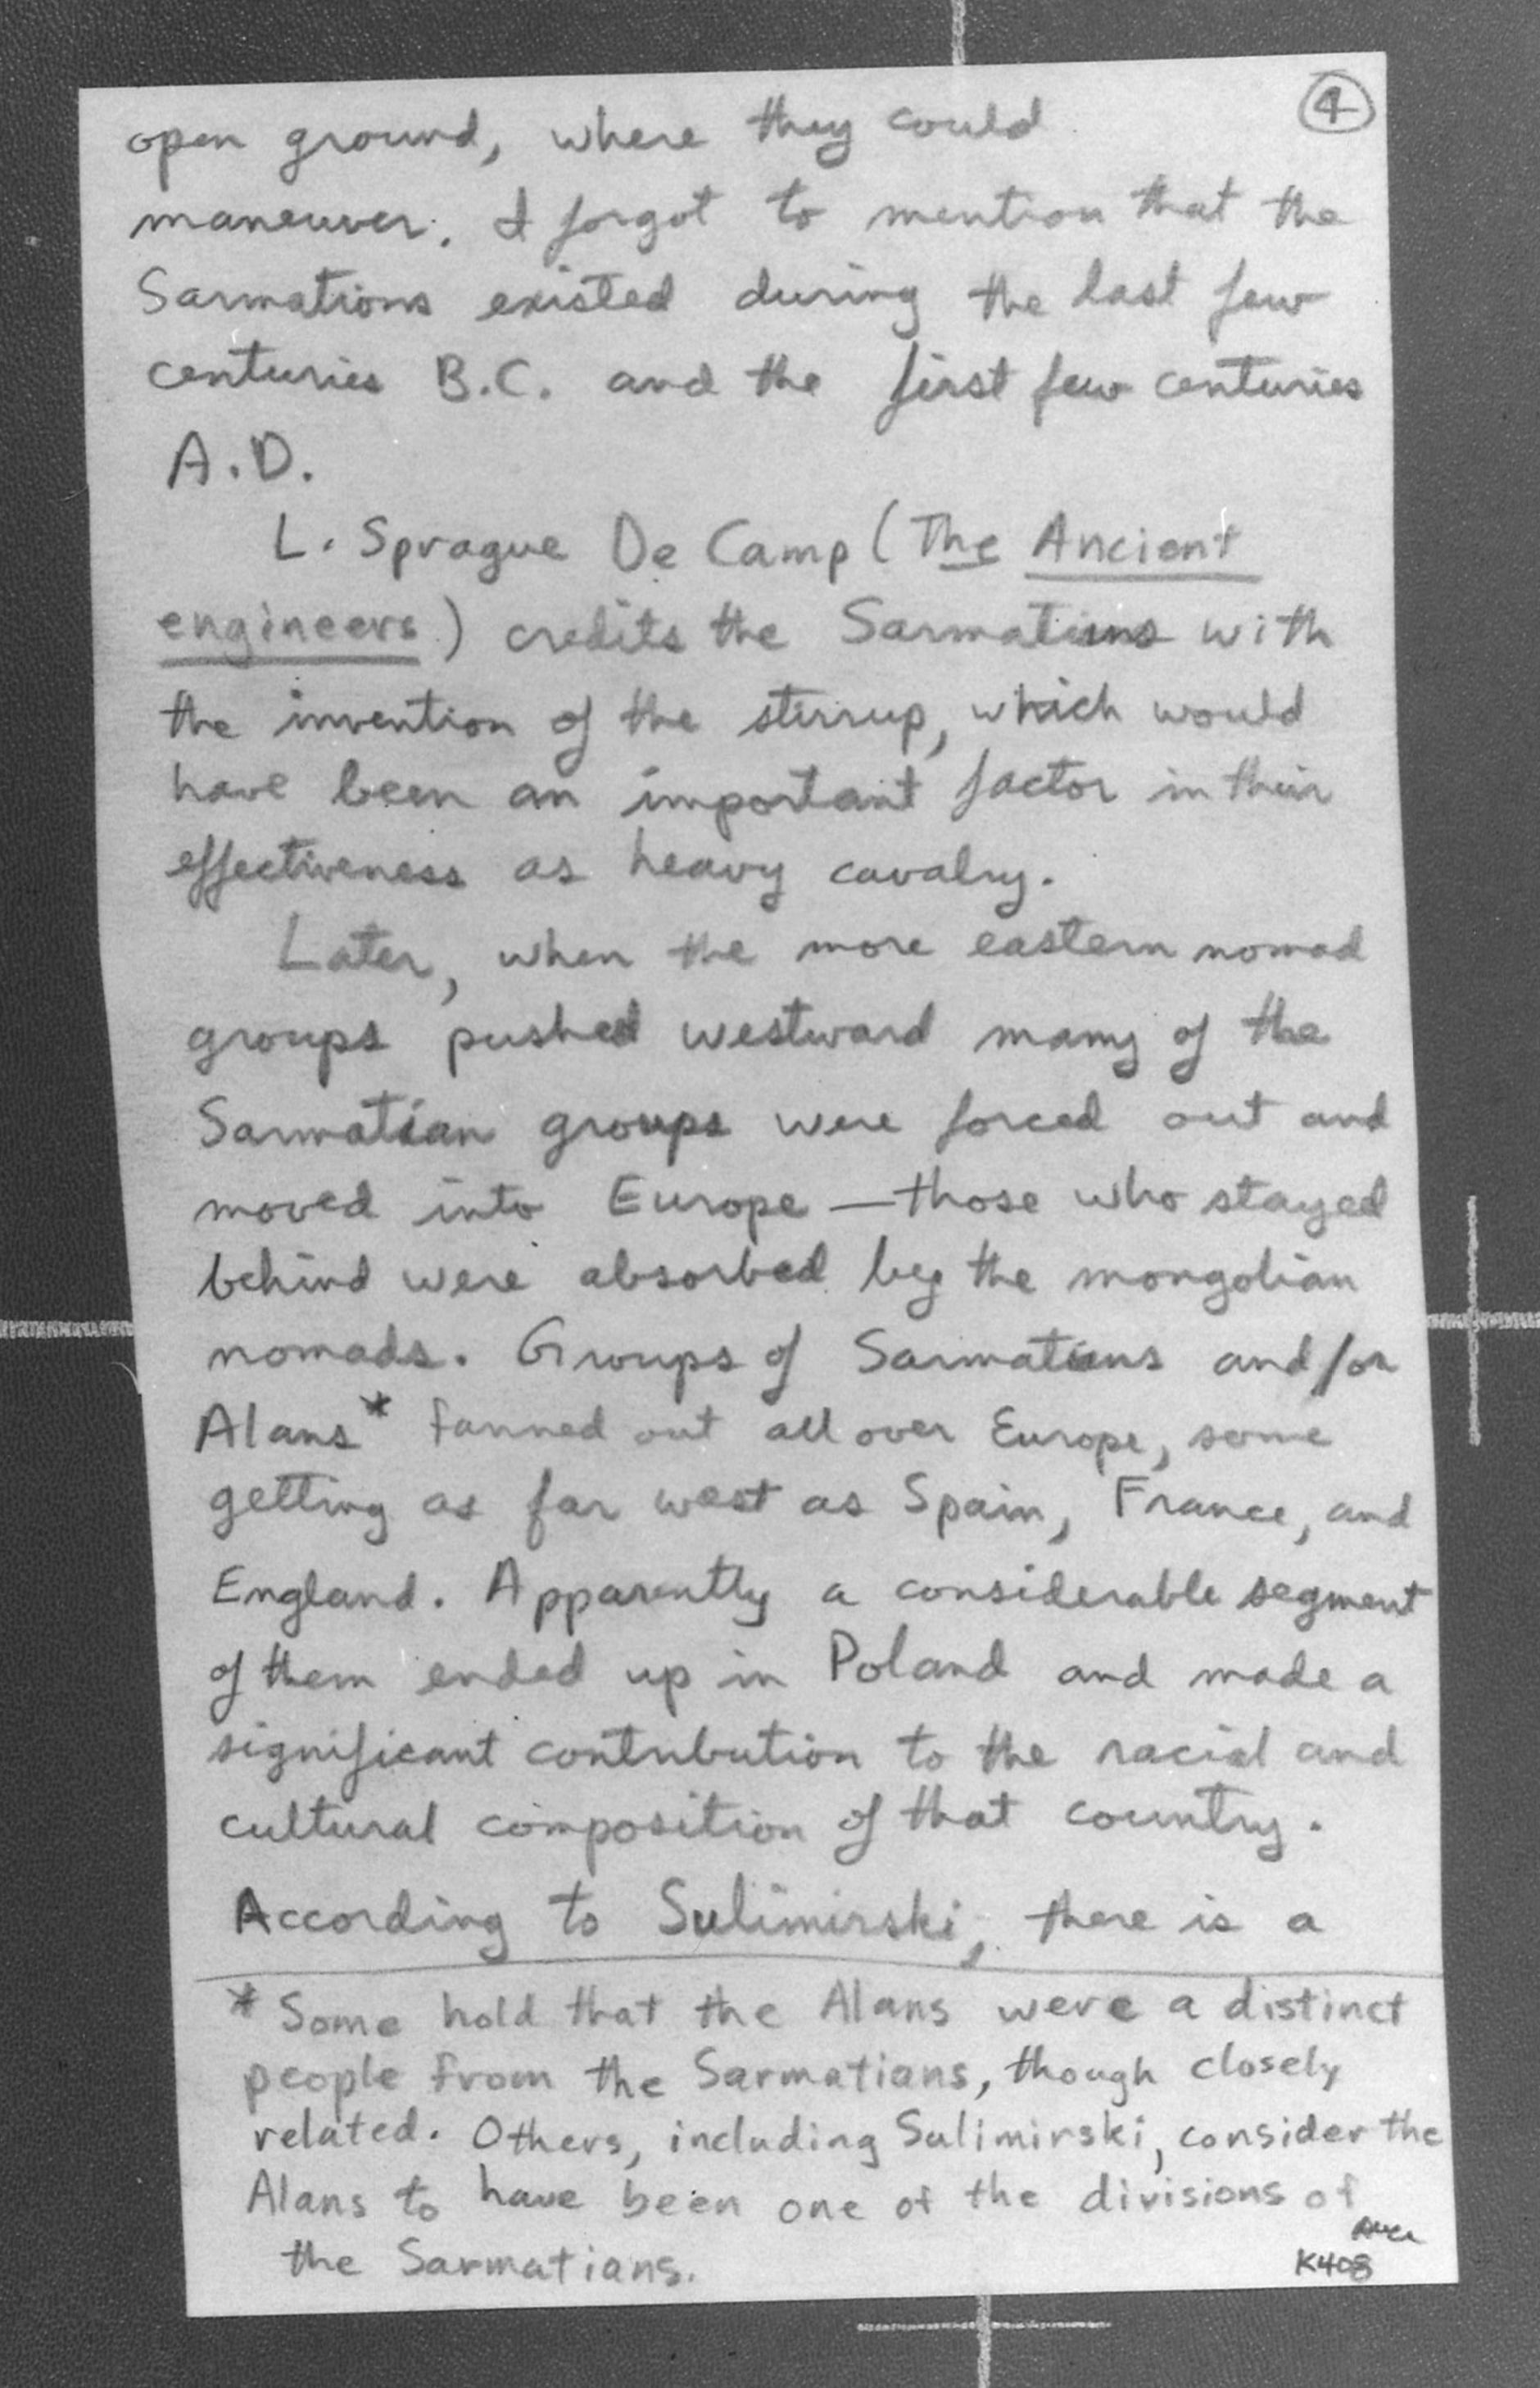 4
open ground, where they could
maneuver. I forgot to mention that the
Sarmations existed during the last few
centuries B.C. and the first few centuries
A.D.
L. Sprague De Camp (The Ancient
engineers) credits the Sarmatians with
the invention of the stirrup, which would
have been an important factor in their
effectiveness as heavy cavalry.
Later, when the more eastern nomad
groups pushed westward many of the
Sarmatian groups were forced out and
moved into Europe — those who stayed
behind were absorbed by the mongolian
nomads. Groups of Sarmatians and/or
Alans* fanned out all over Europe, some
getting as far west as Spain, France, and
England. Apparently a considerable segment
of them ended up in Poland and made a
significant contribution to the racial and
cultural composition of that country.
According to Sulimirski, there is a
* Some hold that the Alans were a distinct
people from the Sarmatians, though closely
related. Others, including Sulimirski, consider the
Alans to have been one of the divisions of
the Sarmatians.
K408